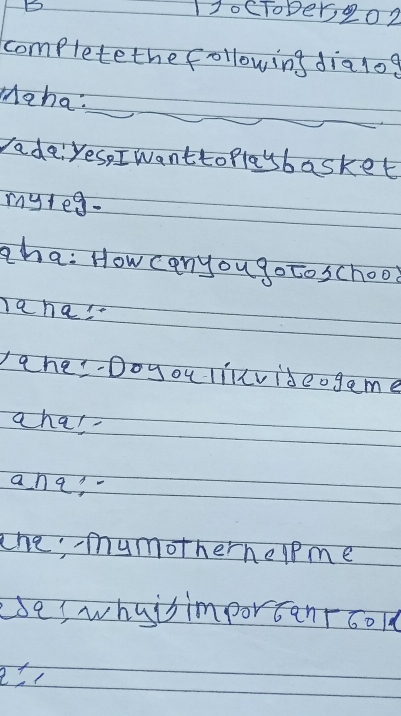 B 13 October, 202
complete the following dialog
Maha:
Yada: Yes, I want to play basket
my leg.
aha: How can you go to school
aha:-
ane:-Do you lik video game
aha:-
ana:-
the:-my mother help me
why is important to